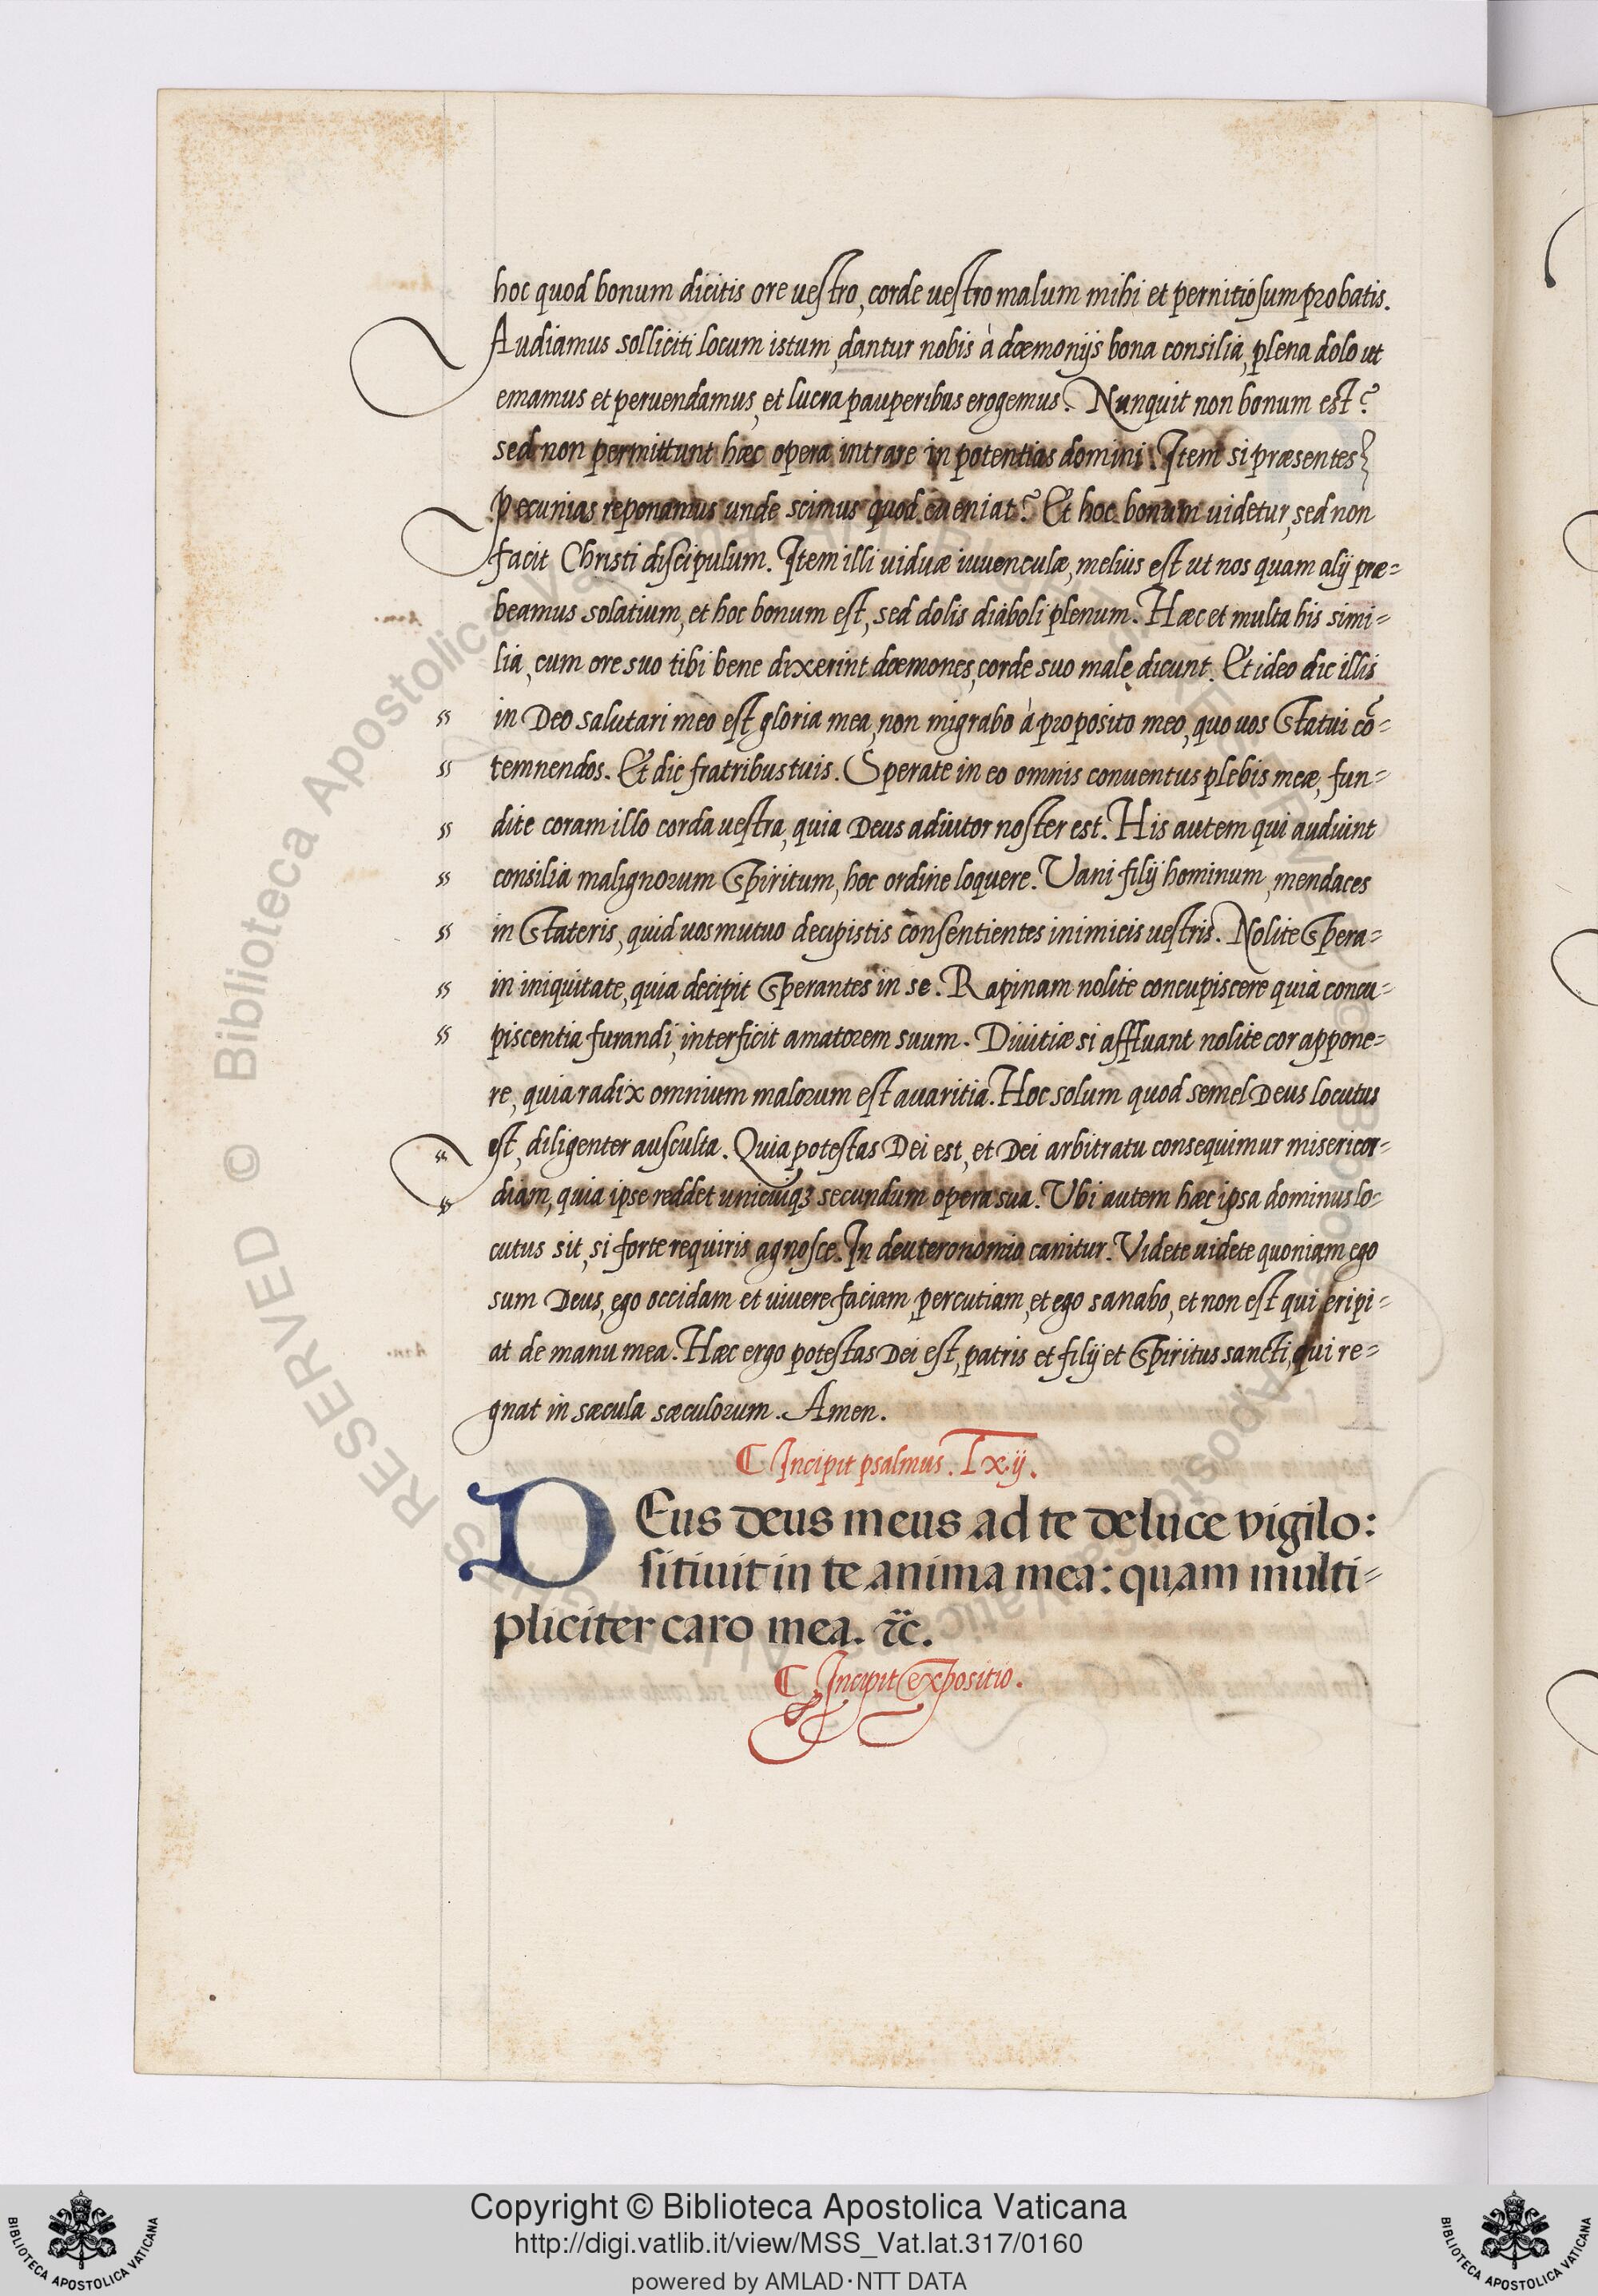 hoc quod bonum dicitis ore uestro, corde uestro malum mihi et pernitiosum probatis.
Audiamus solliciti locum istum, dantur nobis à dæmonijs bona consilia, plena dolo ut
emamus et peruendamus, et lucra pauperibus erogemus. Nunquit non bonum est?
sed non permittunt hæc opera intrare in potentias domini. Item si præsentes
pecunias reponamus unde scimus quod eueniat? Et hoc bonum uidetur, sed non
facit Christi discipulum. Item illi uiduæ iuuenculæ, melius est ut nos quam alij præ=
beamus solatium, et hoc bonum est, sed dolis diaboli plenum. Hæc et multa his simi=
lia, cum ore suo tibi bene dixerint dœmones, corde suo male dicunt. Et ideo dic illis
in Deo salutari meo est gloria mea, non migrabo à proposito meo, quo uos statui cõ=
temnendos. Et dic fratribus tuis. Sperate in eo omnis conuentus plebis meæ, fun=
dite coram illo corda uestra, quia Deus adiutor noster est. His autem qui audiunt
consilia malignorum spirituum, hoc ordine loquere. Vani filij hominum, mendaces
in stateris, quid uos mutuo decipistis consentientes inimicis uestris. Nolite spera=
in iniquitate, quia decipit sperantes in se. Rapinam nolite concupiscere quia concu=
piscentia furandi, interficit amatorem suum. Diuitiæ si affluant nolite cor appone=
re, quia radix omnium malorum est auaritia. Hoc solum quod semel Deus locutus
est, diligenter ausculta. Quia potestas Dei est, et Dei arbitratu consequimur misericor=
diam, quia ipse reddet unicuiqꝫ secundum opera sua. Vbi autem hæc ipsa dominus lo=
cutus sit, si forte requiris agnosce. In deuteronomio canitur. Videte uidete quoniam ego
sum Deus, ego occidam et uiuere faciam, percutiam, et ego sanabo, et non est qui eripi=
at de manu mea. Hæc ergo potestas Dei est, patris et filij et spiritus sancti, qui re=
gnat in sæcula sæculorum. Amen.
Incipit psalmus. Lxij.
DEus deus meus ad te de luce vigilo:
sitiuit in te anima mea: quam multi=
pliciter caro mea. &c.
Incipit expositio.
Copyright © Biblioteca Apostolica Vaticana
http://digi.vatlib.it/view/MSS_Vat.lat.317/0160
powered by AMLAD·NTT DATA
BIBLIOTECA APOSTOLICA VATICANA
BIBLIOTECA APOSTOLICA VATICANA